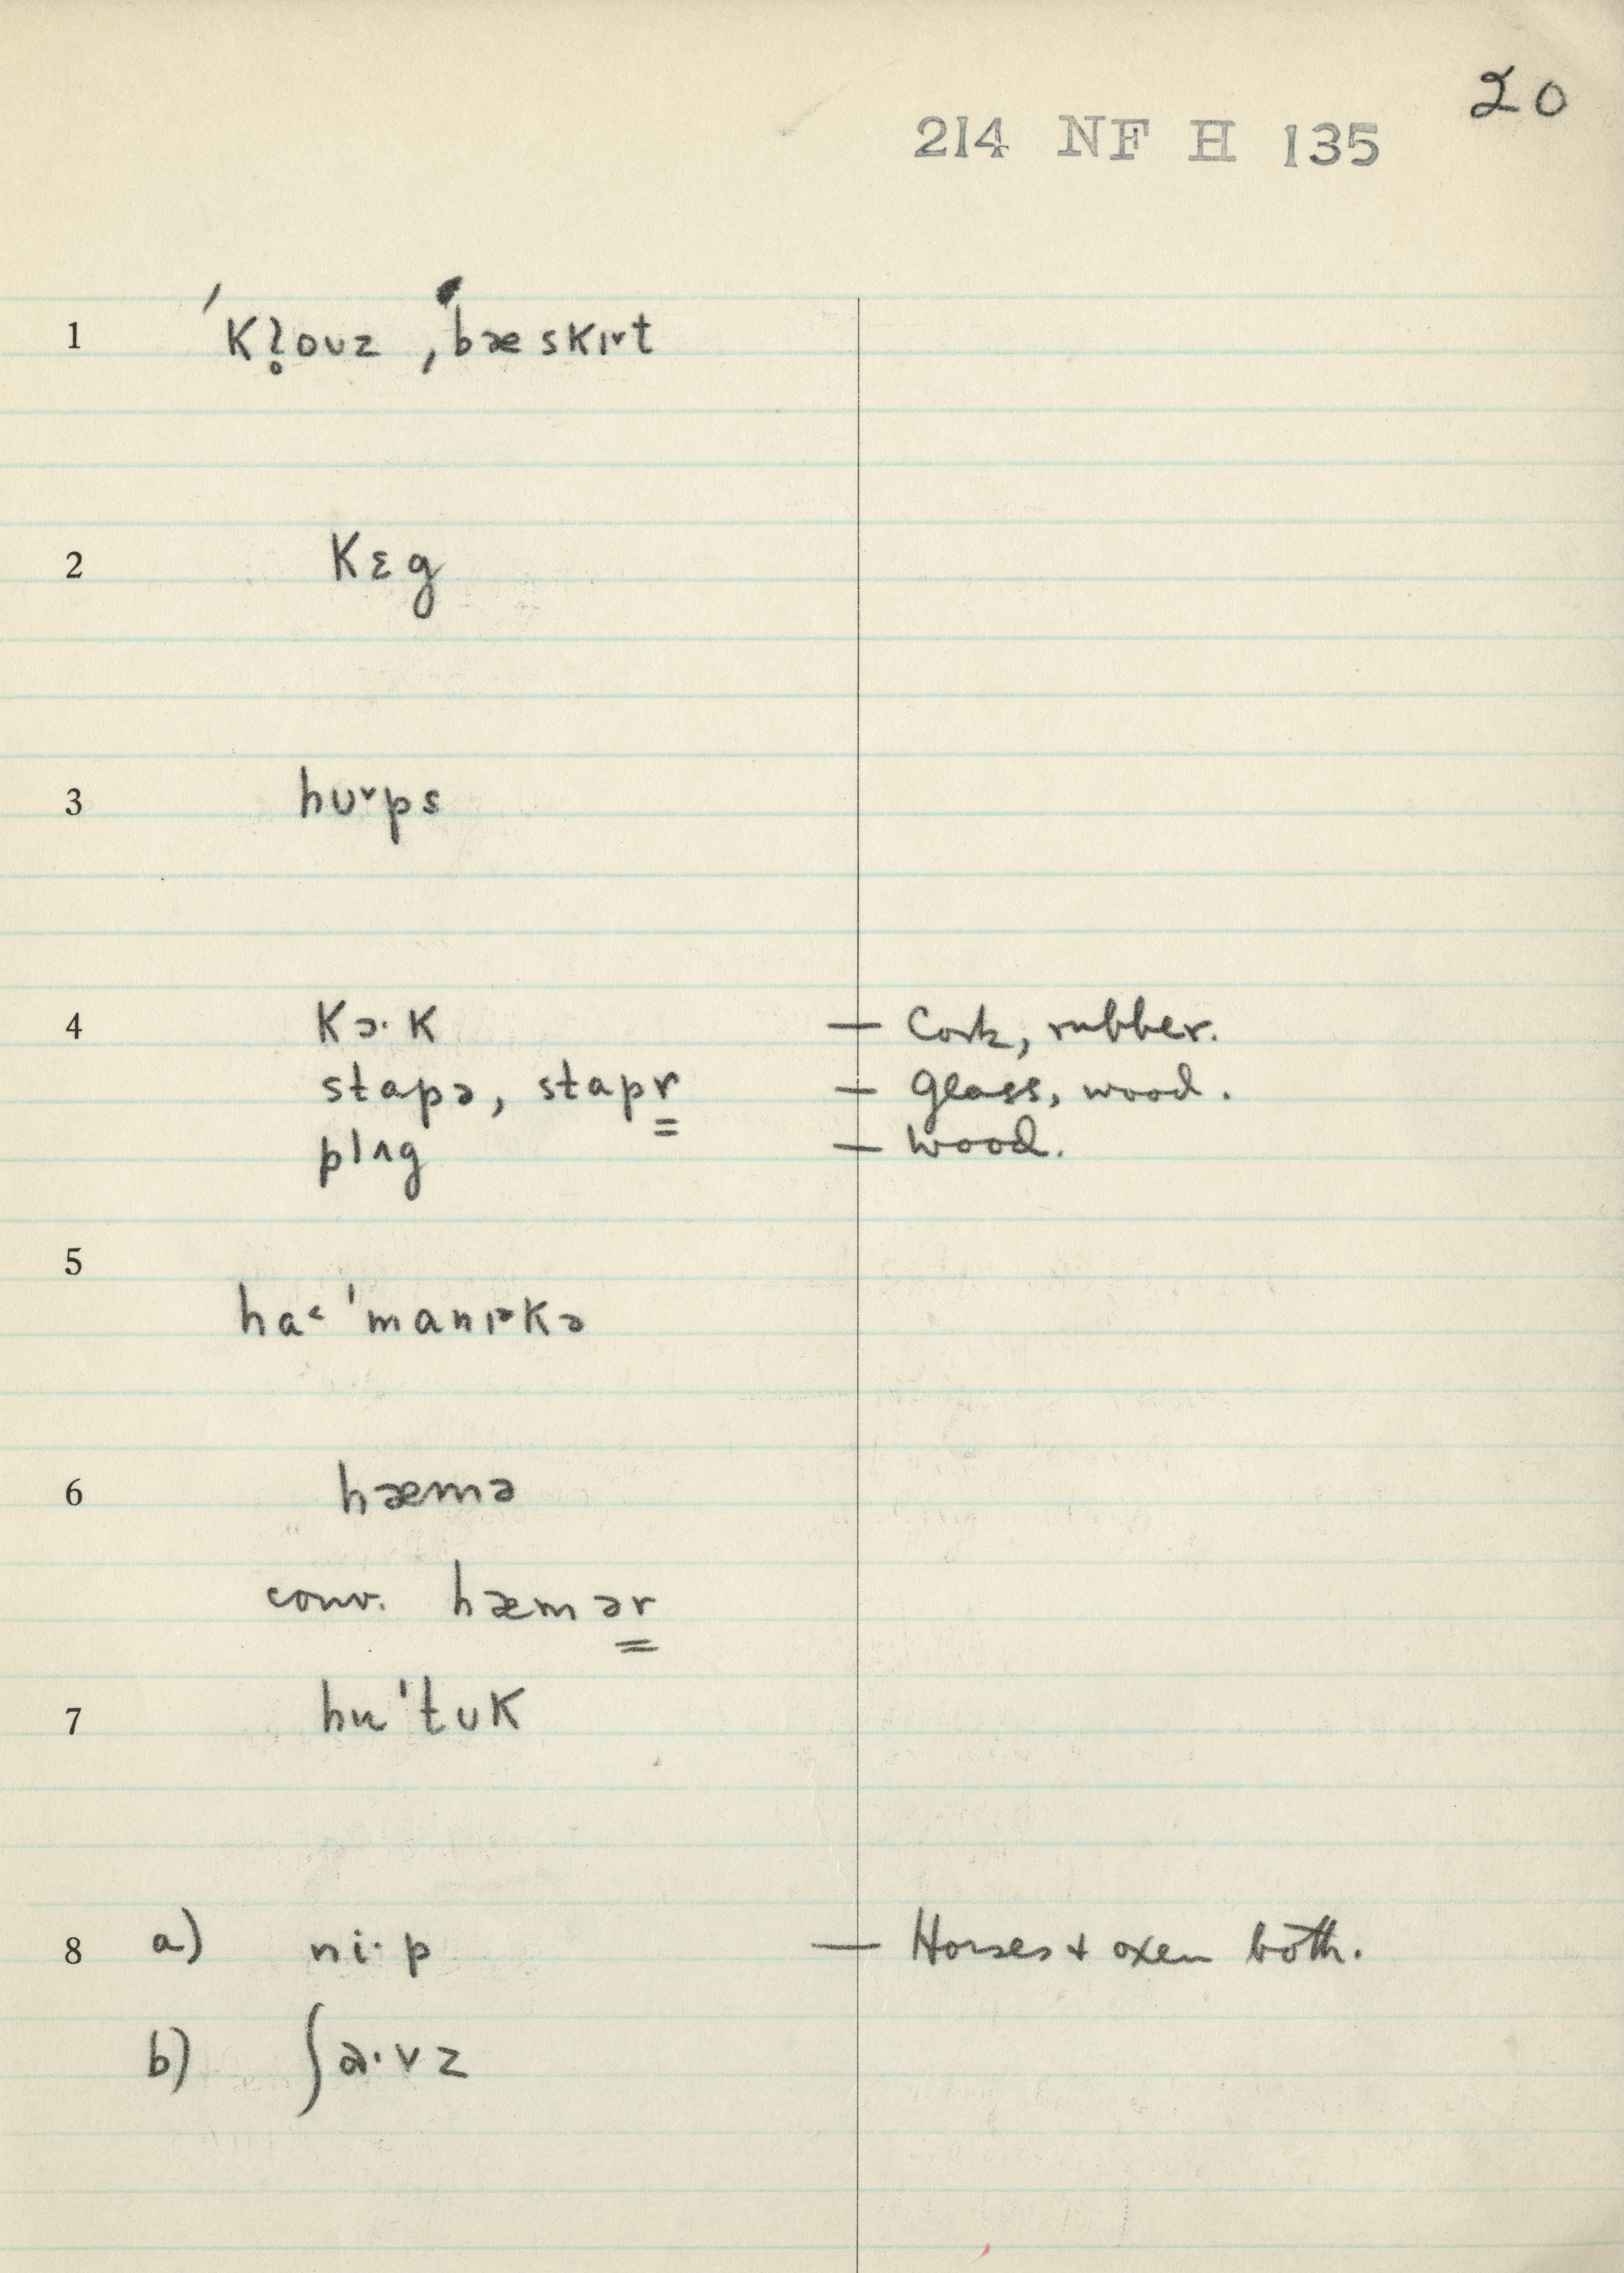 20
214 NF H 135
1 ˈKl̥oʊz ˌbæskɪ˅t
2 Kɛg
3 hʊ˅ps
4 Kɔ·K — Cork, rubber.
stapə, stapr̳ — glass, wood.
plʌg — wood.
5 ha˂ˈmanɪ˃Kə
6 hæmə
conv. hæmər̳
7 huˈtʊK
8 a) ni·p — Horses + oxen both.
b) ʃa·vz